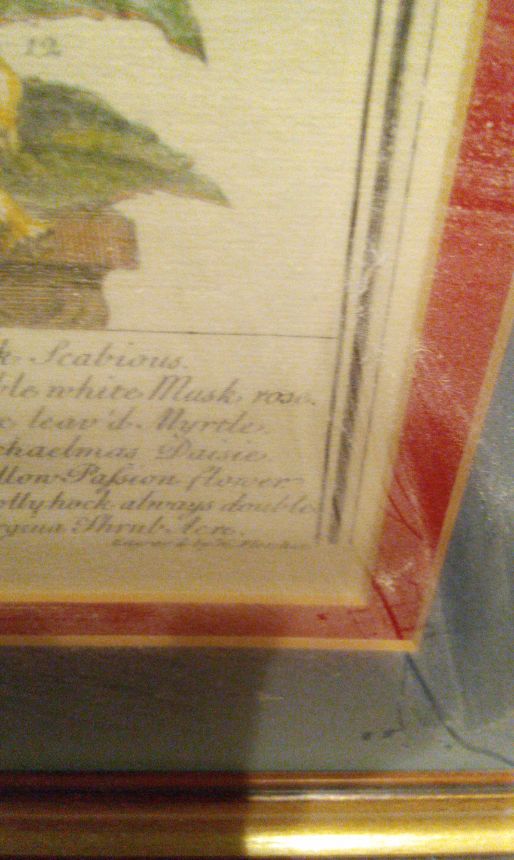 12
Scabious.
white Musk rose.
leav'd Myrtle.
chaelmas Daisie
llow Passion flower
ollyhock always double
Shrub Acre.